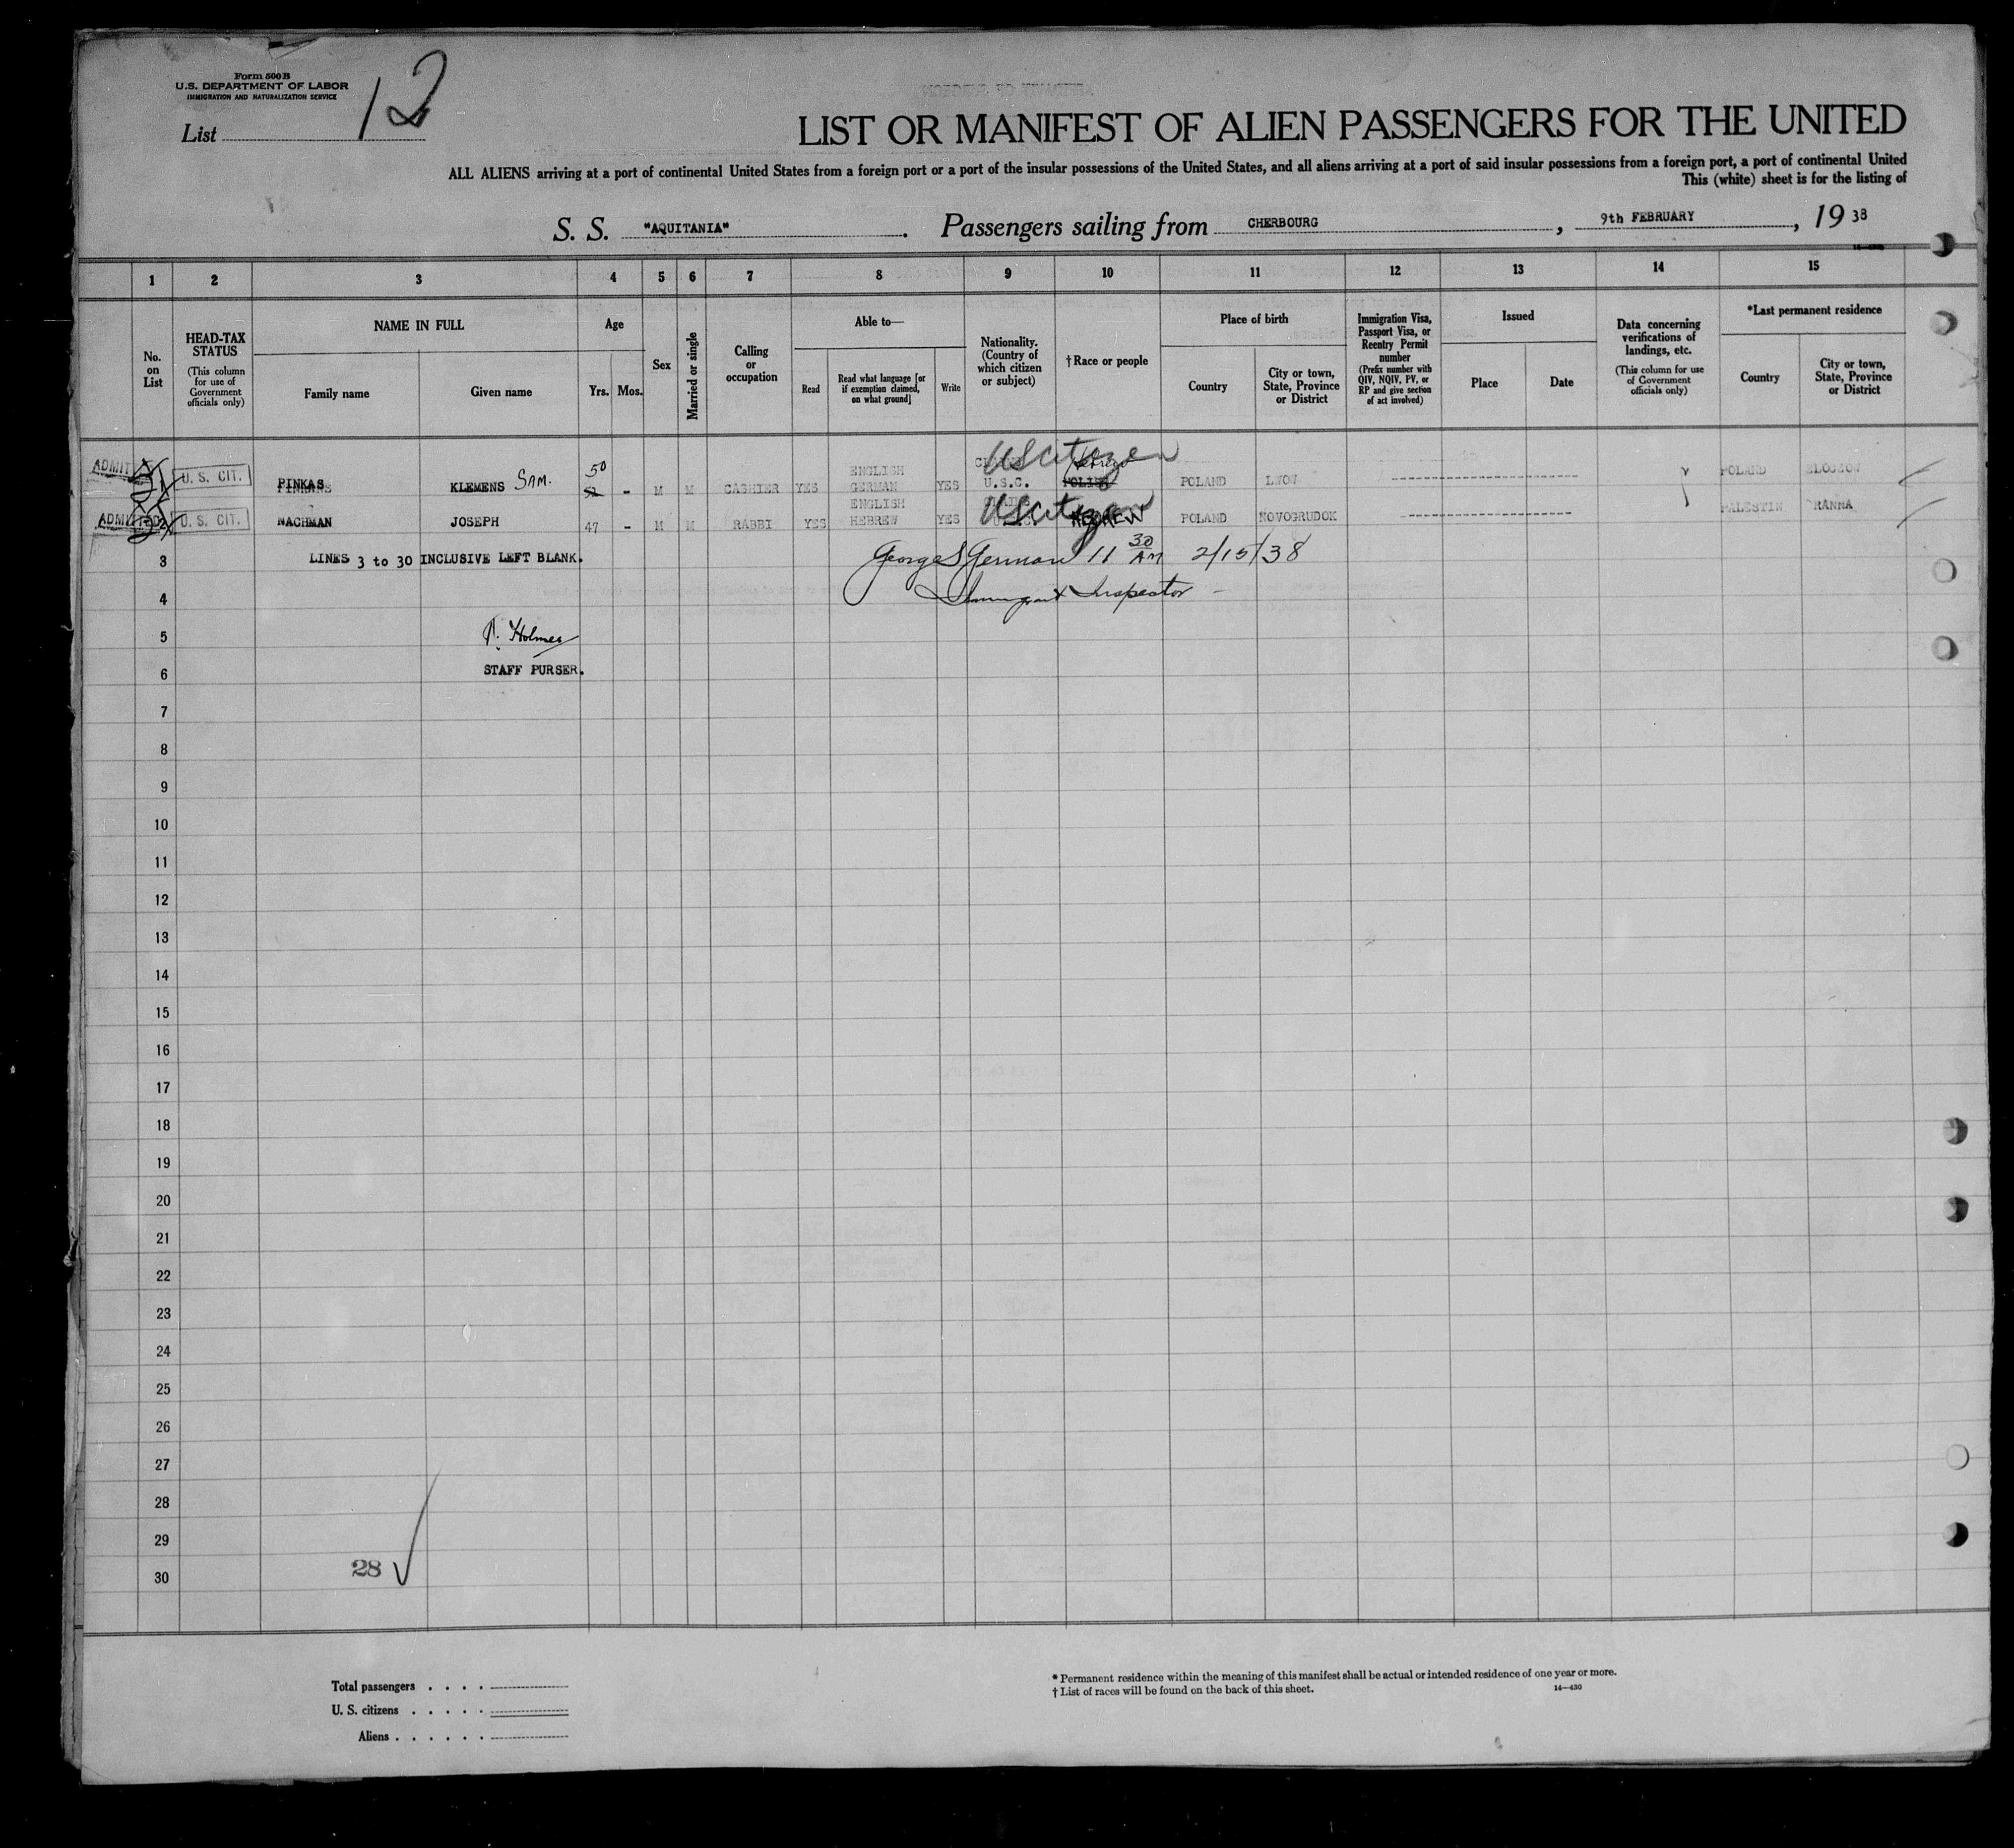 Form 500 B
U.S. DEPARTMENT OF LABOR
IMMIGRATION AND NATURALIZATION SERVICE
List 12
LIST OR MANIFEST OF ALIEN PASSENGERS FOR THE UNITED
ALL ALIENS arriving at a port of continental United States from a foreign port or a port of the insular possessions of the United States, and all aliens arriving at a port of said insular possessions from a foreign port, a port of continental United
This (white) sheet is for the listing of
S. S. "AQUITANIA". Passengers sailing from CHERBOURG, 9th FEBRUARY, 19 38
1 2 3 4 5 6 7 8 9 10 11 12 13 14 15
No. on List
HEAD-TAX STATUS
(This column for use of Government officials only)
NAME IN FULL
Family name
Given name
Age
Yrs. Mos.
Sex
Married or single
Calling or occupation
Able to—
Read
Read what language [or if exemption claimed, on what ground]
Write
Nationality. (Country of which citizen or subject)
† Race or people
Place of birth
Country
City or town, State, Province or District
Immigration Visa, Passport Visa, or Reentry Permit number
(Prefix number with QIV, NQIV, PV, or RP and give section of act involved)
Issued
Place
Date
Data concerning verifications of landings, etc.
(This column for use of Government officials only)
*Last permanent residence
Country
City or town, State, Province or District
ADMIT 1 U. S. CIT. PINKAS KLEMENS SAM. 50 52 - M M CASHIER YES ENGLISH GERMAN YES U.S.C. US citizen Hebrew POLISH POLAND LWOW POLAND ZLOCZOW
ADMITTED 2 U. S. CIT. NACHMAN JOSEPH 47 - M M RABBI YES ENGLISH HEBREW YES US citizen HEBREW POLAND NOVOGRUDOK PALESTIN RANNA
3 LINES 3 to 30 INCLUSIVE LEFT BLANK. George S German 11 30 AM 2/15/38
4 Immigrant Inspector
5 Holmes
6 STAFF PURSER.
7
8
9
10
11
12
13
14
15
16
17
18
19
20
21
22
23
24
25
26
27
28
29
30
28
Total passengers
U. S. citizens
Aliens
* Permanent residence within the meaning of this manifest shall be actual or intended residence of one year or more.
† List of races will be found on the back of this sheet.
14—430